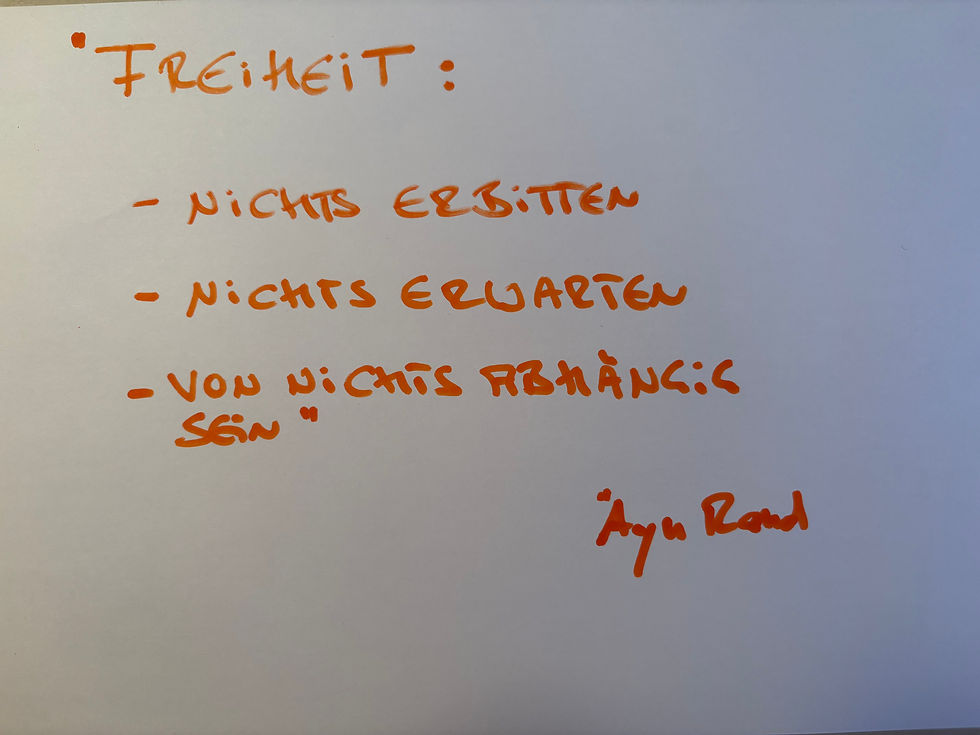 "FREiHEiT:
- NiCHTS ERBiTTEN
- NiCHTS ERWARTEN
- VON NiCHTS ABHÄNGiG
SEiN"
"Ayn Rand